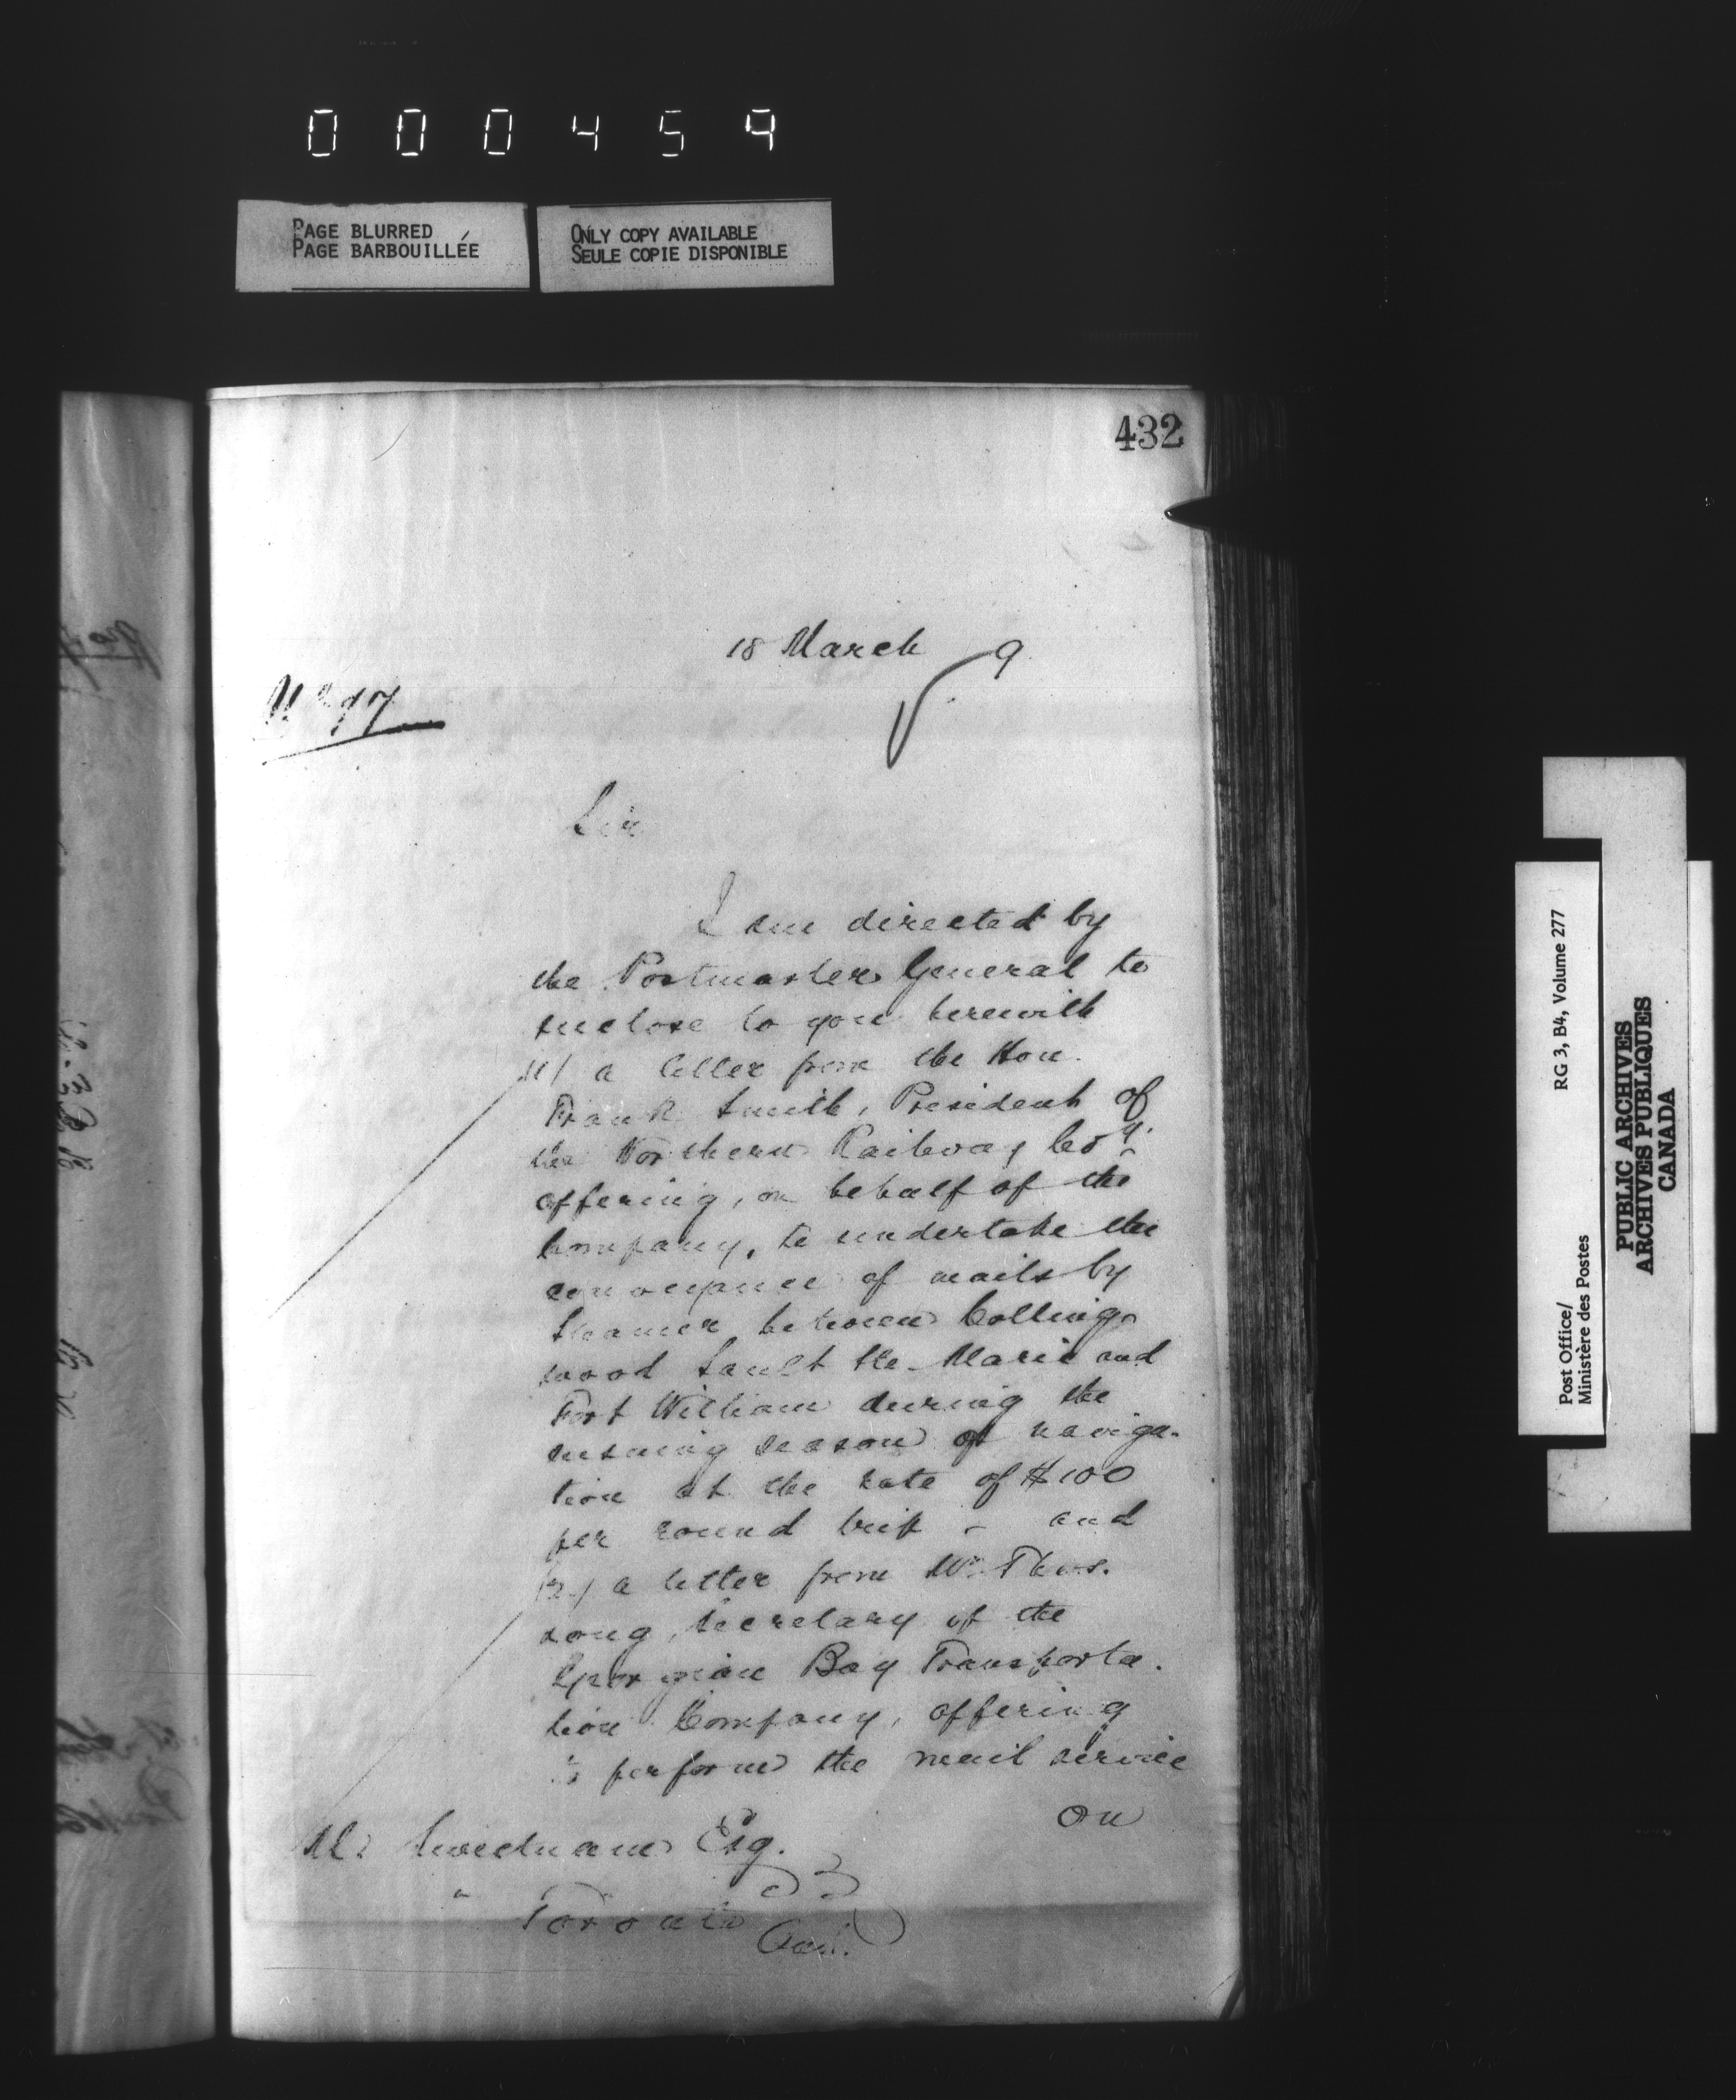 000459
PAGE BLURRED
PAGE BARBOUILLÉE
ONLY COPY AVAILABLE
SEULE COPIE DISPONIBLE
432
18 March 9
No 97
Sir
I am directed by
the Postmaster General to
enclose to you herewith
(1) a letter from the Hon.
Frank Smith, President of
the Northern Railway Coy.
offering, on behalf of the
Company, to undertake the
conveyance of mails by
Steamer between Colling
wood Sault Ste. Marie and
Fort William during the
ensuing season of naviga-
tion at the rate of $100
per round trip - and
(2) a letter from Mr. Thos.
Long, Secretary of the
Georgian Bay Transporta-
tion Company, offering
to perform the mail service
on
M. Sweetnam Esq.
Toronto
RG 3, B4, Volume 277
Post Office/
Ministère des Postes
PUBLIC ARCHIVES
ARCHIVES PUBLIQUES
CANADA